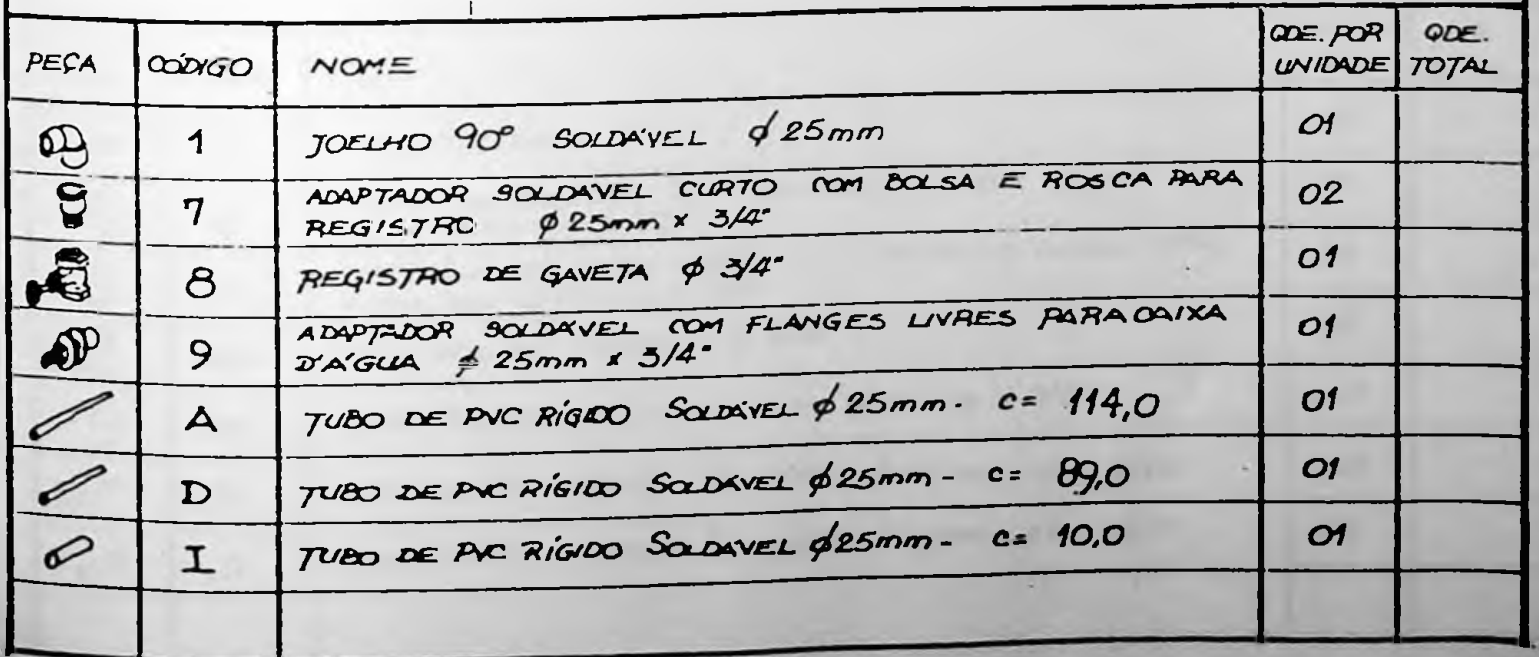 PEÇA CÓDIGO NOME QDE. POR UNIDADE QDE. TOTAL
1 JOELHO 90° SOLDÁVEL ϕ 25mm 01
7 ADAPTADOR SOLDÁVEL CURTO COM BOLSA E ROSCA PARA
REGISTRO ϕ 25mm x 3/4" 02
8 REGISTRO DE GAVETA ϕ 3/4" 01
9 ADAPTADOR SOLDÁVEL COM FLANGES LIVRES PARA CAIXA
D'ÁGUA ϕ 25mm x 3/4" 01
A TUBO DE PVC RÍGIDO SOLDÁVEL ϕ 25mm - c= 114,0 01
D TUBO DE PVC RÍGIDO SOLDÁVEL ϕ 25mm - c= 89,0 01
I TUBO DE PVC RÍGIDO SOLDÁVEL ϕ 25mm - c= 10,0 01